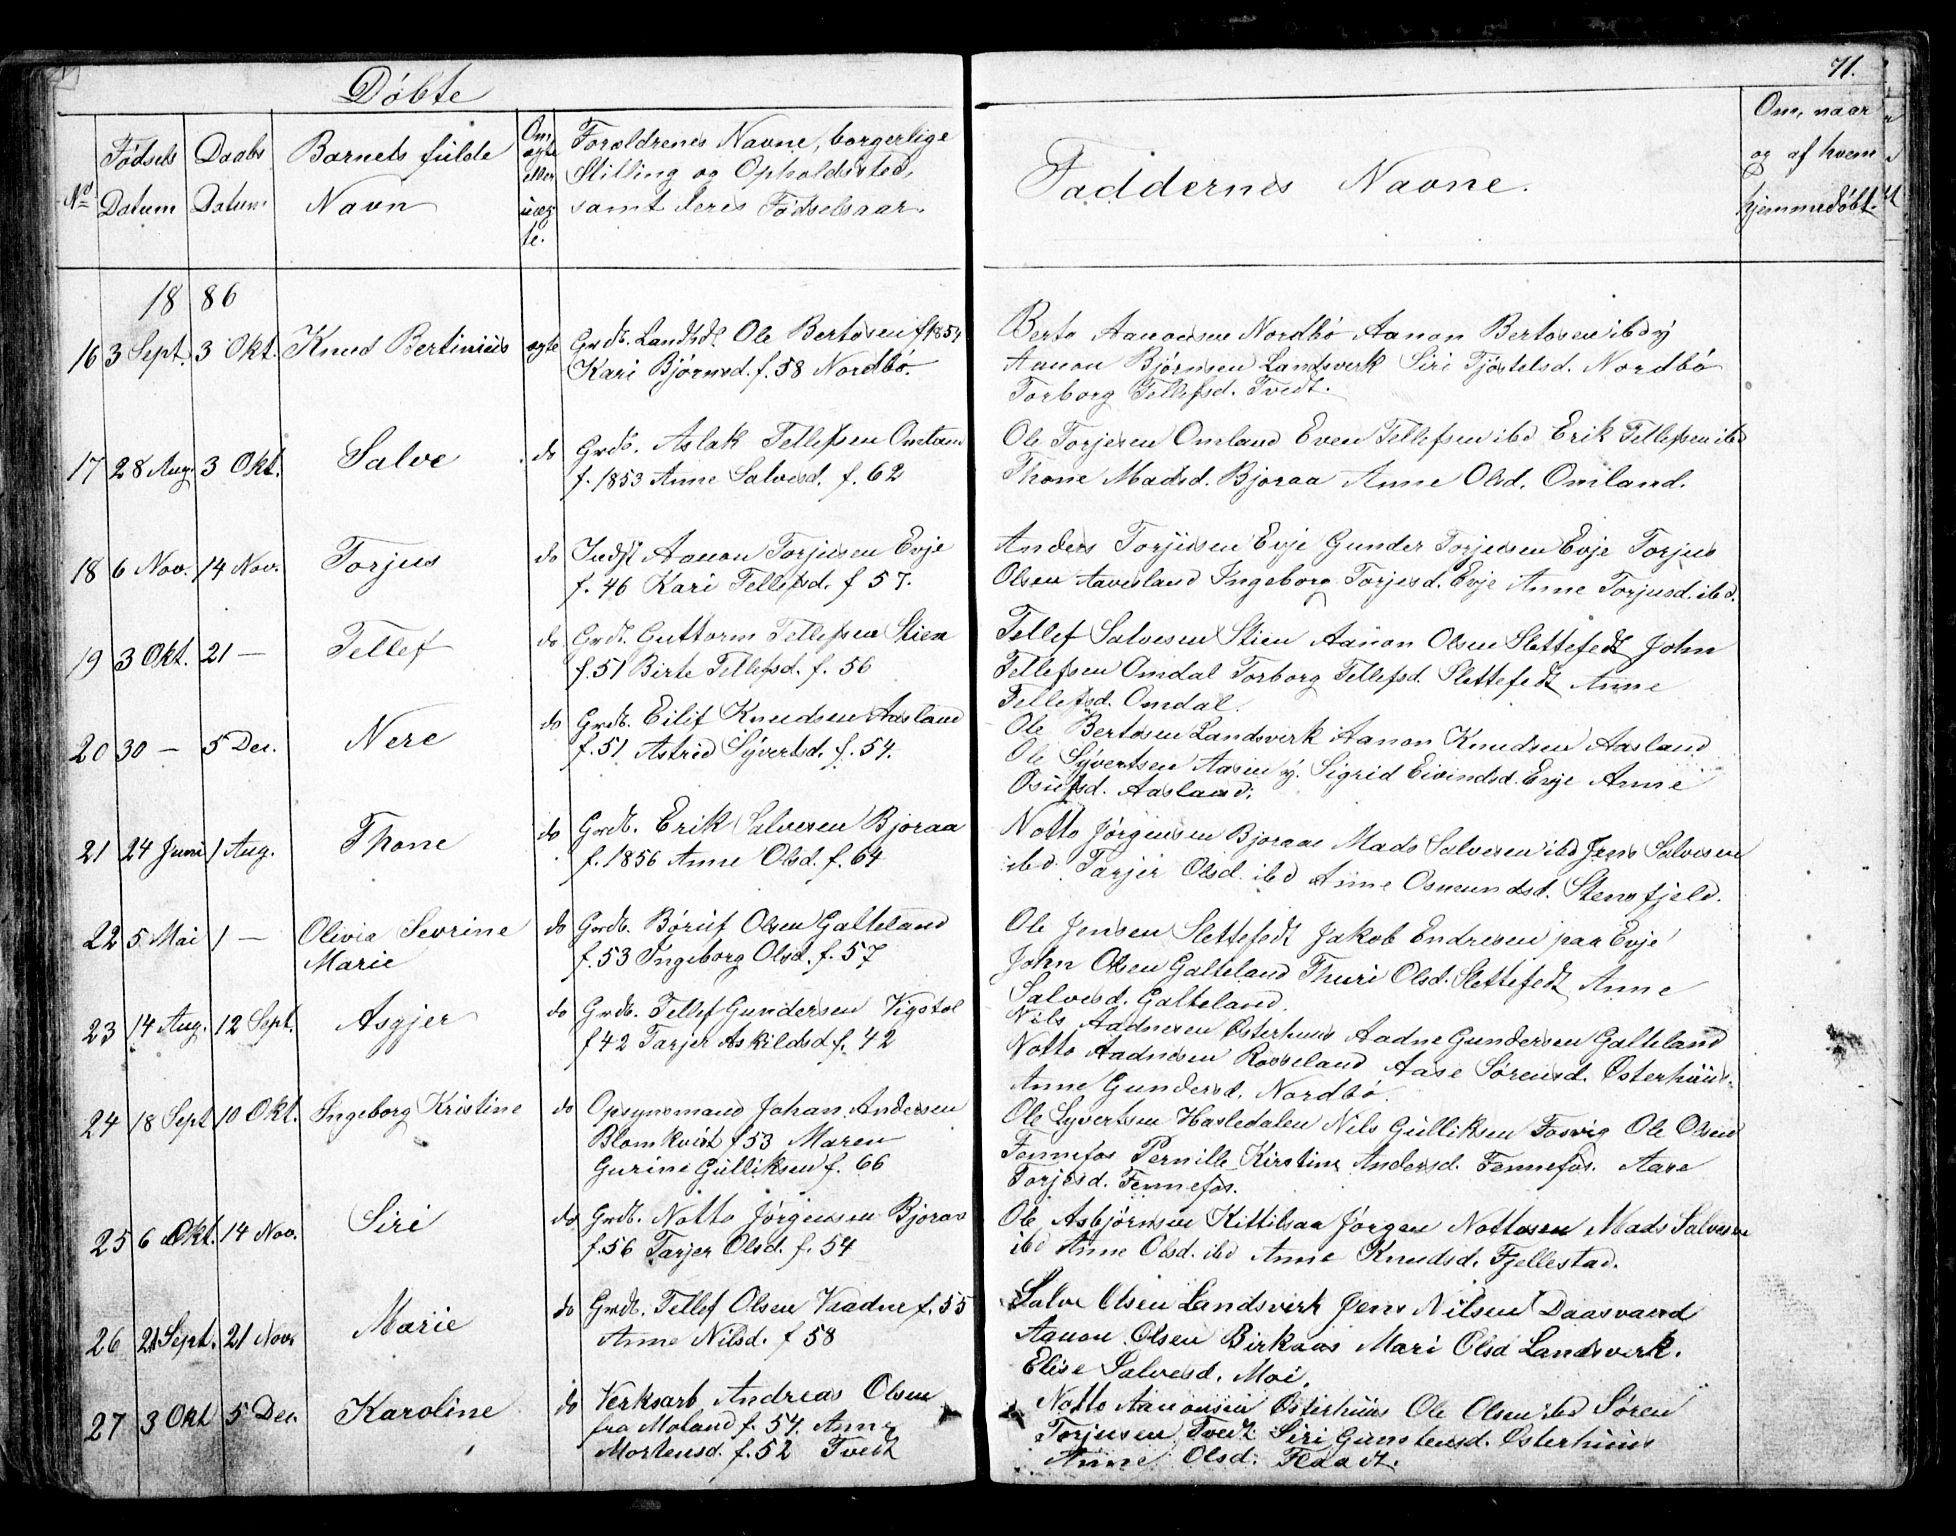 Døbte
No
Fødsels Datum
Daabs Datum
Barnets fulde Navn
Om ægte eller uæg te.
Forældrenes Navne, borgerlige
Stilling og Opholdssted,
samt deres Fødselsaar.
1886
16 3 Sept. 3 Okt. Knud Bertinius ægte Grdb. Landsdl Ole Bertosen f 1854
Kari Bjørnsd. f. 58 Nordbø.
17 28 Aug. 3 Okt. Salve do Grdb. Aslak Tellefsen Omland
f. 1853 Anne Salvesd. f. 62
18 6 Nov. 14 Nov. Torjus do Indst Aanon Torjusen Evje
f. 46 Kari Tellefsd. f 57.
19 3 Okt. 21 — Tellef do Grdb. Guttorm Tellefsen Stien
f. 51 Birte Tellefsd. f. 56
20 30 — 5 Dec. Nere do Grdb. Eilif Knudsen Aasland
f. 51 Astrid Syvertsd. f. 54.
21 24 Juni 1 Aug. Thone do Grdb. Erik Salvesen Bjoraa
f. 1856 Anne Olsd. f. 64
22 5 Mai 1 — Olivia Sevrine do Grdb. Børuf Olsen Galteland
Marie f. 53 Ingeborg Olsd. f. 57
23 14 Aug. 12 Sept. Asgjer do Grdb. Tellef Gundersen Vigstøl
f 42 Tarjer Askildsd f. 42
24 18 Sept 10 Okt. Ingeborg Kristine do Opsynsmand Johan Andersen
Blomkvist f 53 Maren
Gurine Gulliksen f. 66
25 6 Okt. 14 Nov. Siri do Grdb. Notto Jørgensen Bjoraa
f. 56 Tarjer Olsd. f. 54
26 21 Sept. 21 Nov. Marie do Grdb. Tellef Olsen Vaadne f. 55
Anne Nilsd. f 58
27 3 Okt 5 Dec. Karoline do Verksarb Andreas Olsen
fra Moland f. 54. Anne
Mortensd. f. 52 Tvedt
71.
Faddernes Navne.
Om, naar
og af hvem
hjemmedøbt.
Berto Aanonsen Nordbø Aanon Bertosen ibd
Aanon Bjørnsen Landsverk Siri Tjøstelsd. Nordbø
Torborg Tellefsd. Tvedt.
Ole Torjesen Omland Even Tellefsen ibd Erik Tellefsen ibd
Thone Madsd. Bjoraa Anne Olsd. Omland.
Anders Torjusen Evje Gunder Torjusen Evje Torjus
Olsen Aavesland Ingeborg Torjesd. Evje Anne Torjusd. ibd.
Tellef Salvesen Stien Aanon Olsen Slettefedt John
Tellefsen Omdal Torborg Tellefsd. Slettefedt Anne
Tellefsd. Omdal.
Ole Bertosen Landsverk Aanon Knudsen Aasland
Ole Syvertsen Aasen y. Sigrid Eivindsd. Evje Anne
Osufsd. Aasland.
Notto Jørgensen Bjoraa Mads Salvesen ibd Jens Salvesen
ibd Tarjer Olsd. ibd Anne Osmundsd. Stensfjeld.
Ole Jensen Slettefedt Jakob Endresen paa Evje
John Olsen Galteland Thuri Olsd. Slettefedt Anne
Salvesd. Galteland.
Nils Aadnesen Østerhuus Aadne Gundersen Galteland
Notto Aadnesen Rosseland Aase Sørensd. Østerhuus.
Anne Gundersd. Nordbø.
Ole Syvertsen Hasledalen Nils Gulliksen Fosvig Ole Olsen
Fennefos Pernille Kirstine Andersd. Fennefos. Aase
Torjesd. Fennefos.
Ole Asbjørnsen Kittilsaa Jørgen Nottosen Mads Salvesen
ibd Anne Olsd. ibd Anne Knudsd. Fjellestad.
Salve Olsen Landsverk Jens Nilsen Daasvand
Aanon Olsen Birkaas Mari Olsd Landsverk.
Elise Salvesd. Moi.
Notto Aanonsen Østerhuus Ole Olsen ibd Søren
Torjusen Tvedt Siri Gunstensd. Østerhuus
Anne Olsd. Flaadt.